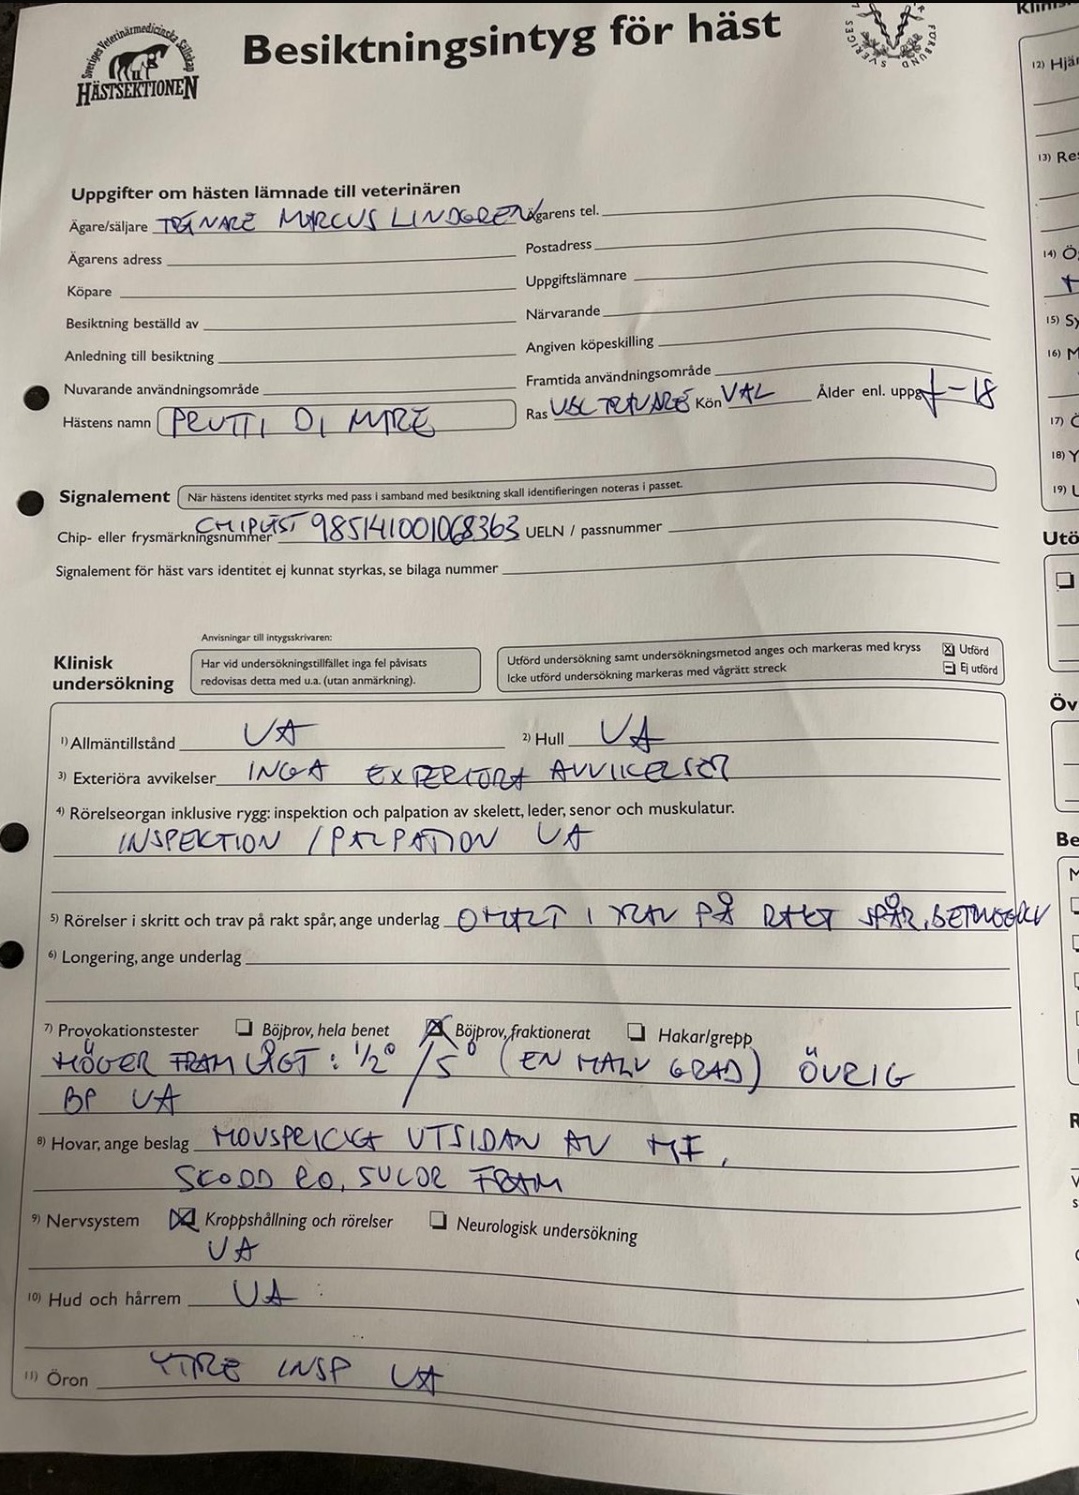 Besiktningsintyg för häst
Sveriges Veterinärmedicinska Sällskap
HÄSTSEKTIONEN
SVERIGES FÖRBUND
Uppgifter om hästen lämnade till veterinären
Ägare/säljare TRÄNARE MARCUS LINDGREN Ägarens tel.
Ägarens adress Postadress
Köpare Uppgiftslämnare
Besiktning beställd av Närvarande
Anledning till besiktning Angiven köpeskilling
Nuvarande användningsområde Framtida användningsområde
Hästens namn PRUTTI DI MIRE Ras VBL TRAVARE Kön VAL Ålder enl. uppg -18
Signalement När hästens identitet styrks med pass i samband med besiktning skall identifieringen noteras i passet.
Chip- eller frysmärkningsnummer CHIPLÄST 985141001068363 UELN / passnummer
Signalement för häst vars identitet ej kunnat styrkas, se bilaga nummer
Anvisningar till intygsskrivaren:
Klinisk undersökning
Har vid undersökningstillfället inga fel påvisats
redovisas detta med u.a. (utan anmärkning).
Utförd undersökning samt undersökningsmetod anges och markeras med kryss Utförd
Icke utförd undersökning markeras med vågrätt streck Ej utförd
1) Allmäntillstånd UA 2) Hull UA
3) Exteriöra avvikelser INGA EXTERIÖRA AVVIKELSER
4) Rörelseorgan inklusive rygg: inspektion och palpation av skelett, leder, senor och muskulatur.
INSPEKTION / PALPATION UA
5) Rörelser i skritt och trav på rakt spår, ange underlag OHALT I TRAV PÅ RAKT SPÅR,
6) Longering, ange underlag
7) Provokationstester Böjprov, hela benet Böjprov, fraktionerat Hakar/grepp
HÖGER FRAM LÅGT: 1/2°/5° (EN HALV GRAD) ÖVRIG
BP UA
8) Hovar, ange beslag HOVSPRICKA UTSIDAN AV HF,
SKODD RO, SULOR FRAM
9) Nervsystem Kroppshållning och rörelser Neurologisk undersökning
UA
10) Hud och hårrem UA
11) Öron YTTRE INSP UA
12) Hjä
13) Re
14) Ö
15) Sy
16) M
17) Ö
18) Y
19) L
Utö
Öv
Be